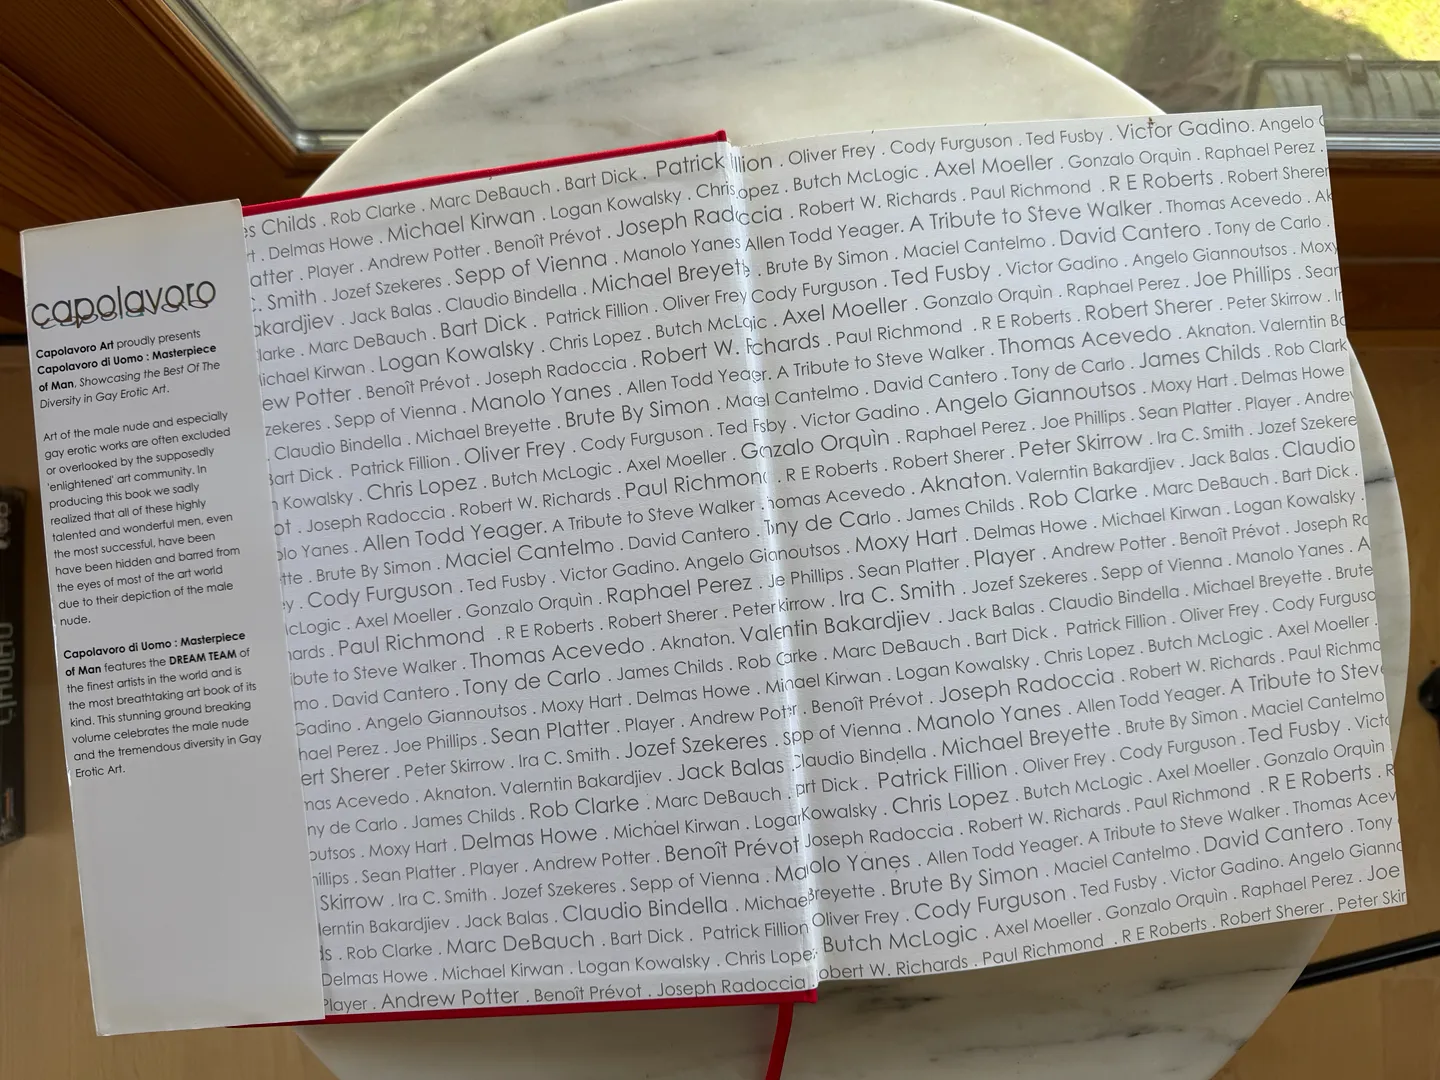 capolavoro
Capolavoro Art proudly presents
Capolavoro di Uomo : Masterpiece
of Man. Showcasing the Best Of The
Diversity in Gay Erotic Art.
Art of the male nude and especially
gay erotic works are often excluded
or overlooked by the supposedly
'enlightened' art community. In
producing this book we sadly
realized that all of these highly
talented and wonderful men, even
the most successful, have been
have been hidden and barred from
the eyes of most of the art world
due to their depiction of the male
nude.
Capolavoro di Uomo : Masterpiece
of Man features the DREAM TEAM of
the finest artists in the world and is
the most breathtaking art book of its
kind. This stunning ground breaking
volume celebrates the male nude
and the tremendous diversity in Gay
Erotic Art.
es Childs . Rob Clarke . Marc DeBauch . Bart Dick . Patrick illion . Oliver Frey . Cody Furguson . Ted Fusby . Victor Gadino. Angelo
rt . Delmas Howe . Michael Kirwan . Logan Kowalsky . Chris opez . Butch McLogic . Axel Moeller . Gonzalo Orquìn . Raphael Perez .
atter . Player . Andrew Potter . Benoît Prévot . Joseph Radoccia . Robert W. Richards . Paul Richmond . R E Roberts . Robert Sherer
C. Smith . Jozef Szekeres . Sepp of Vienna . Manolo Yanes Allen Todd Yeager. A Tribute to Steve Walker . Thomas Acevedo . Ak
akardjiev . Jack Balas . Claudio Bindella . Michael Breyette . Brute By Simon . Maciel Cantelmo . David Cantero . Tony de Carlo .
larke . Marc DeBauch . Bart Dick . Patrick Fillion . Oliver Frey Cody Furguson . Ted Fusby . Victor Gadino. Angelo Giannoutsos . Moxy
ichael Kirwan . Logan Kowalsky . Chris Lopez . Butch McLogic . Axel Moeller . Gonzalo Orquìn . Raphael Perez . Joe Phillips . Sean
ew Potter . Benoît Prévot . Joseph Radoccia . Robert W. Richards . Paul Richmond . R E Roberts . Robert Sherer . Peter Skirrow . Ir
zekeres . Sepp of Vienna . Manolo Yanes . Allen Todd Yeager. A Tribute to Steve Walker . Thomas Acevedo . Aknaton. Valerntin Ba
. Claudio Bindella . Michael Breyette . Brute By Simon . Maciel Cantelmo . David Cantero . Tony de Carlo . James Childs . Rob Clark
Bart Dick . Patrick Fillion . Oliver Frey . Cody Furguson . Ted Fusby . Victor Gadino . Angelo Giannoutsos . Moxy Hart . Delmas Howe
n Kowalsky . Chris Lopez . Butch McLogic . Axel Moeller . Gonzalo Orquìn . Raphael Perez . Joe Phillips . Sean Platter . Player . Andrew
ot . Joseph Radoccia . Robert W. Richards . Paul Richmond . R E Roberts . Robert Sherer . Peter Skirrow . Ira C. Smith . Jozef Szekere
olo Yanes . Allen Todd Yeager. A Tribute to Steve Walker . Thomas Acevedo . Aknaton. Valerntin Bakardjiev . Jack Balas . Claudio
tte . Brute By Simon . Maciel Cantelmo . David Cantero . Tony de Carlo . James Childs . Rob Clarke . Marc DeBauch . Bart Dick .
y . Cody Furguson . Ted Fusby . Victor Gadino. Angelo Giannoutsos . Moxy Hart . Delmas Howe . Michael Kirwan . Logan Kowalsky .
cLogic . Axel Moeller . Gonzalo Orquìn . Raphael Perez . Joe Phillips . Sean Platter . Player . Andrew Potter . Benoît Prévot . Joseph Ra
ards . Paul Richmond . R E Roberts . Robert Sherer . Peter kirrow . Ira C. Smith . Jozef Szekeres . Sepp of Vienna . Manolo Yanes . A
ibute to Steve Walker . Thomas Acevedo . Aknaton. Valentin Bakardjiev . Jack Balas . Claudio Bindella . Michael Breyette . Brute
mo . David Cantero . Tony de Carlo . James Childs . Rob Clarke . Marc DeBauch . Bart Dick . Patrick Fillion . Oliver Frey . Cody Furguso
Gadino . Angelo Giannoutsos . Moxy Hart . Delmas Howe . Michael Kirwan . Logan Kowalsky . Chris Lopez . Butch McLogic . Axel Moeller .
hael Perez . Joe Phillips . Sean Platter . Player . Andrew Potter . Benoît Prévot . Joseph Radoccia . Robert W. Richards . Paul Richmo
ert Sherer . Peter Skirrow . Ira C. Smith . Jozef Szekeres . Sepp of Vienna . Manolo Yanes . Allen Todd Yeager. A Tribute to Steve
mas Acevedo . Aknaton. Valerntin Bakardjiev . Jack Balas . Claudio Bindella . Michael Breyette . Brute By Simon . Maciel Cantelmo
ny de Carlo . James Childs . Rob Clarke . Marc DeBauch . Bart Dick . Patrick Fillion . Oliver Frey . Cody Furguson . Ted Fusby . Victo
outsos . Moxy Hart . Delmas Howe . Michael Kirwan . Logan Kowalsky . Chris Lopez . Butch McLogic . Axel Moeller . Gonzalo Orquìn
hillips . Sean Platter . Player . Andrew Potter . Benoît Prévot Joseph Radoccia . Robert W. Richards . Paul Richmond . R E Roberts . R
Skirrow . Ira C. Smith . Jozef Szekeres . Sepp of Vienna . Manolo Yanes . Allen Todd Yeager. A Tribute to Steve Walker . Thomas Acev
lerntin Bakardjiev . Jack Balas . Claudio Bindella . Michael Breyette . Brute By Simon . Maciel Cantelmo . David Cantero . Tony
ds . Rob Clarke . Marc DeBauch . Bart Dick . Patrick Fillion Oliver Frey . Cody Furguson . Ted Fusby . Victor Gadino. Angelo Gianno
Delmas Howe . Michael Kirwan . Logan Kowalsky . Chris Lopez Butch McLogic . Axel Moeller . Gonzalo Orquìn . Raphael Perez . Joe
Player . Andrew Potter . Benoît Prévot . Joseph Radoccia . obert W. Richards . Paul Richmond . R E Roberts . Robert Sherer . Peter Skir